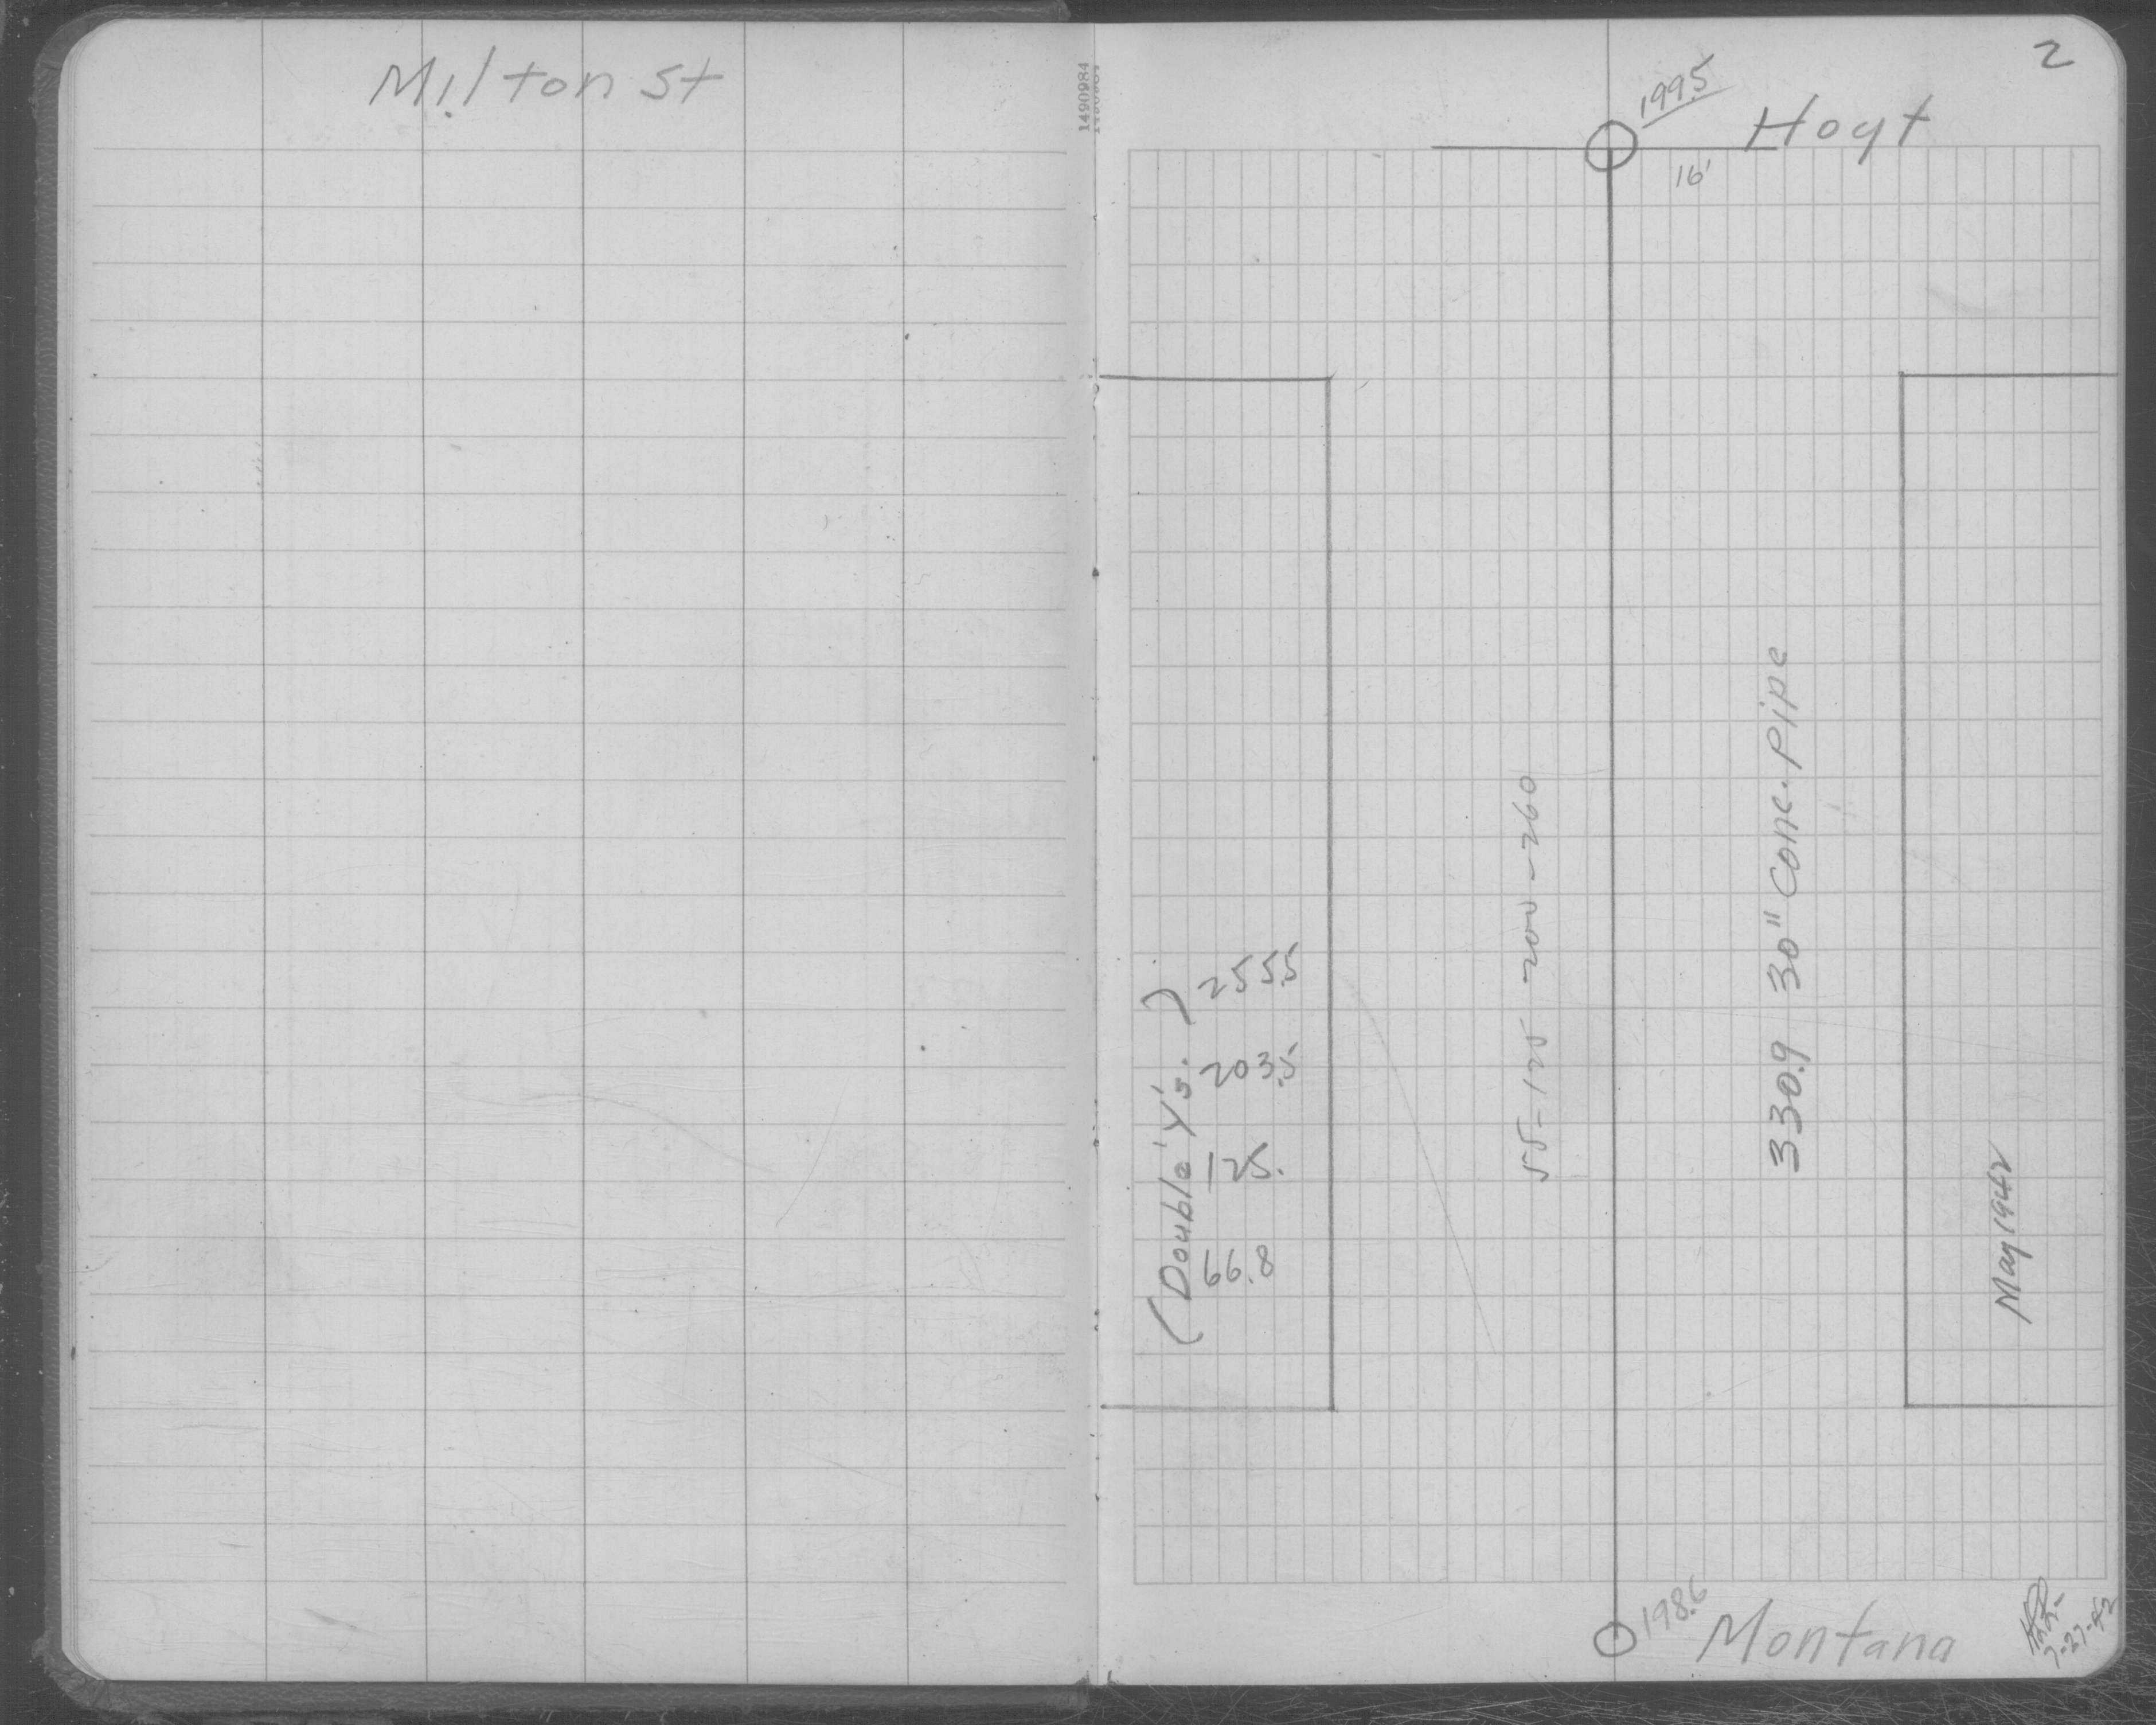 Milton St
1490984
2
199.5
Hoyt
16'
(Double 'Y's.)
255.5
203.5
125.
66.8
55-125-200-260
330.9 30" Conc. Pipe
May 1942
198.6
Montana
7-27-42